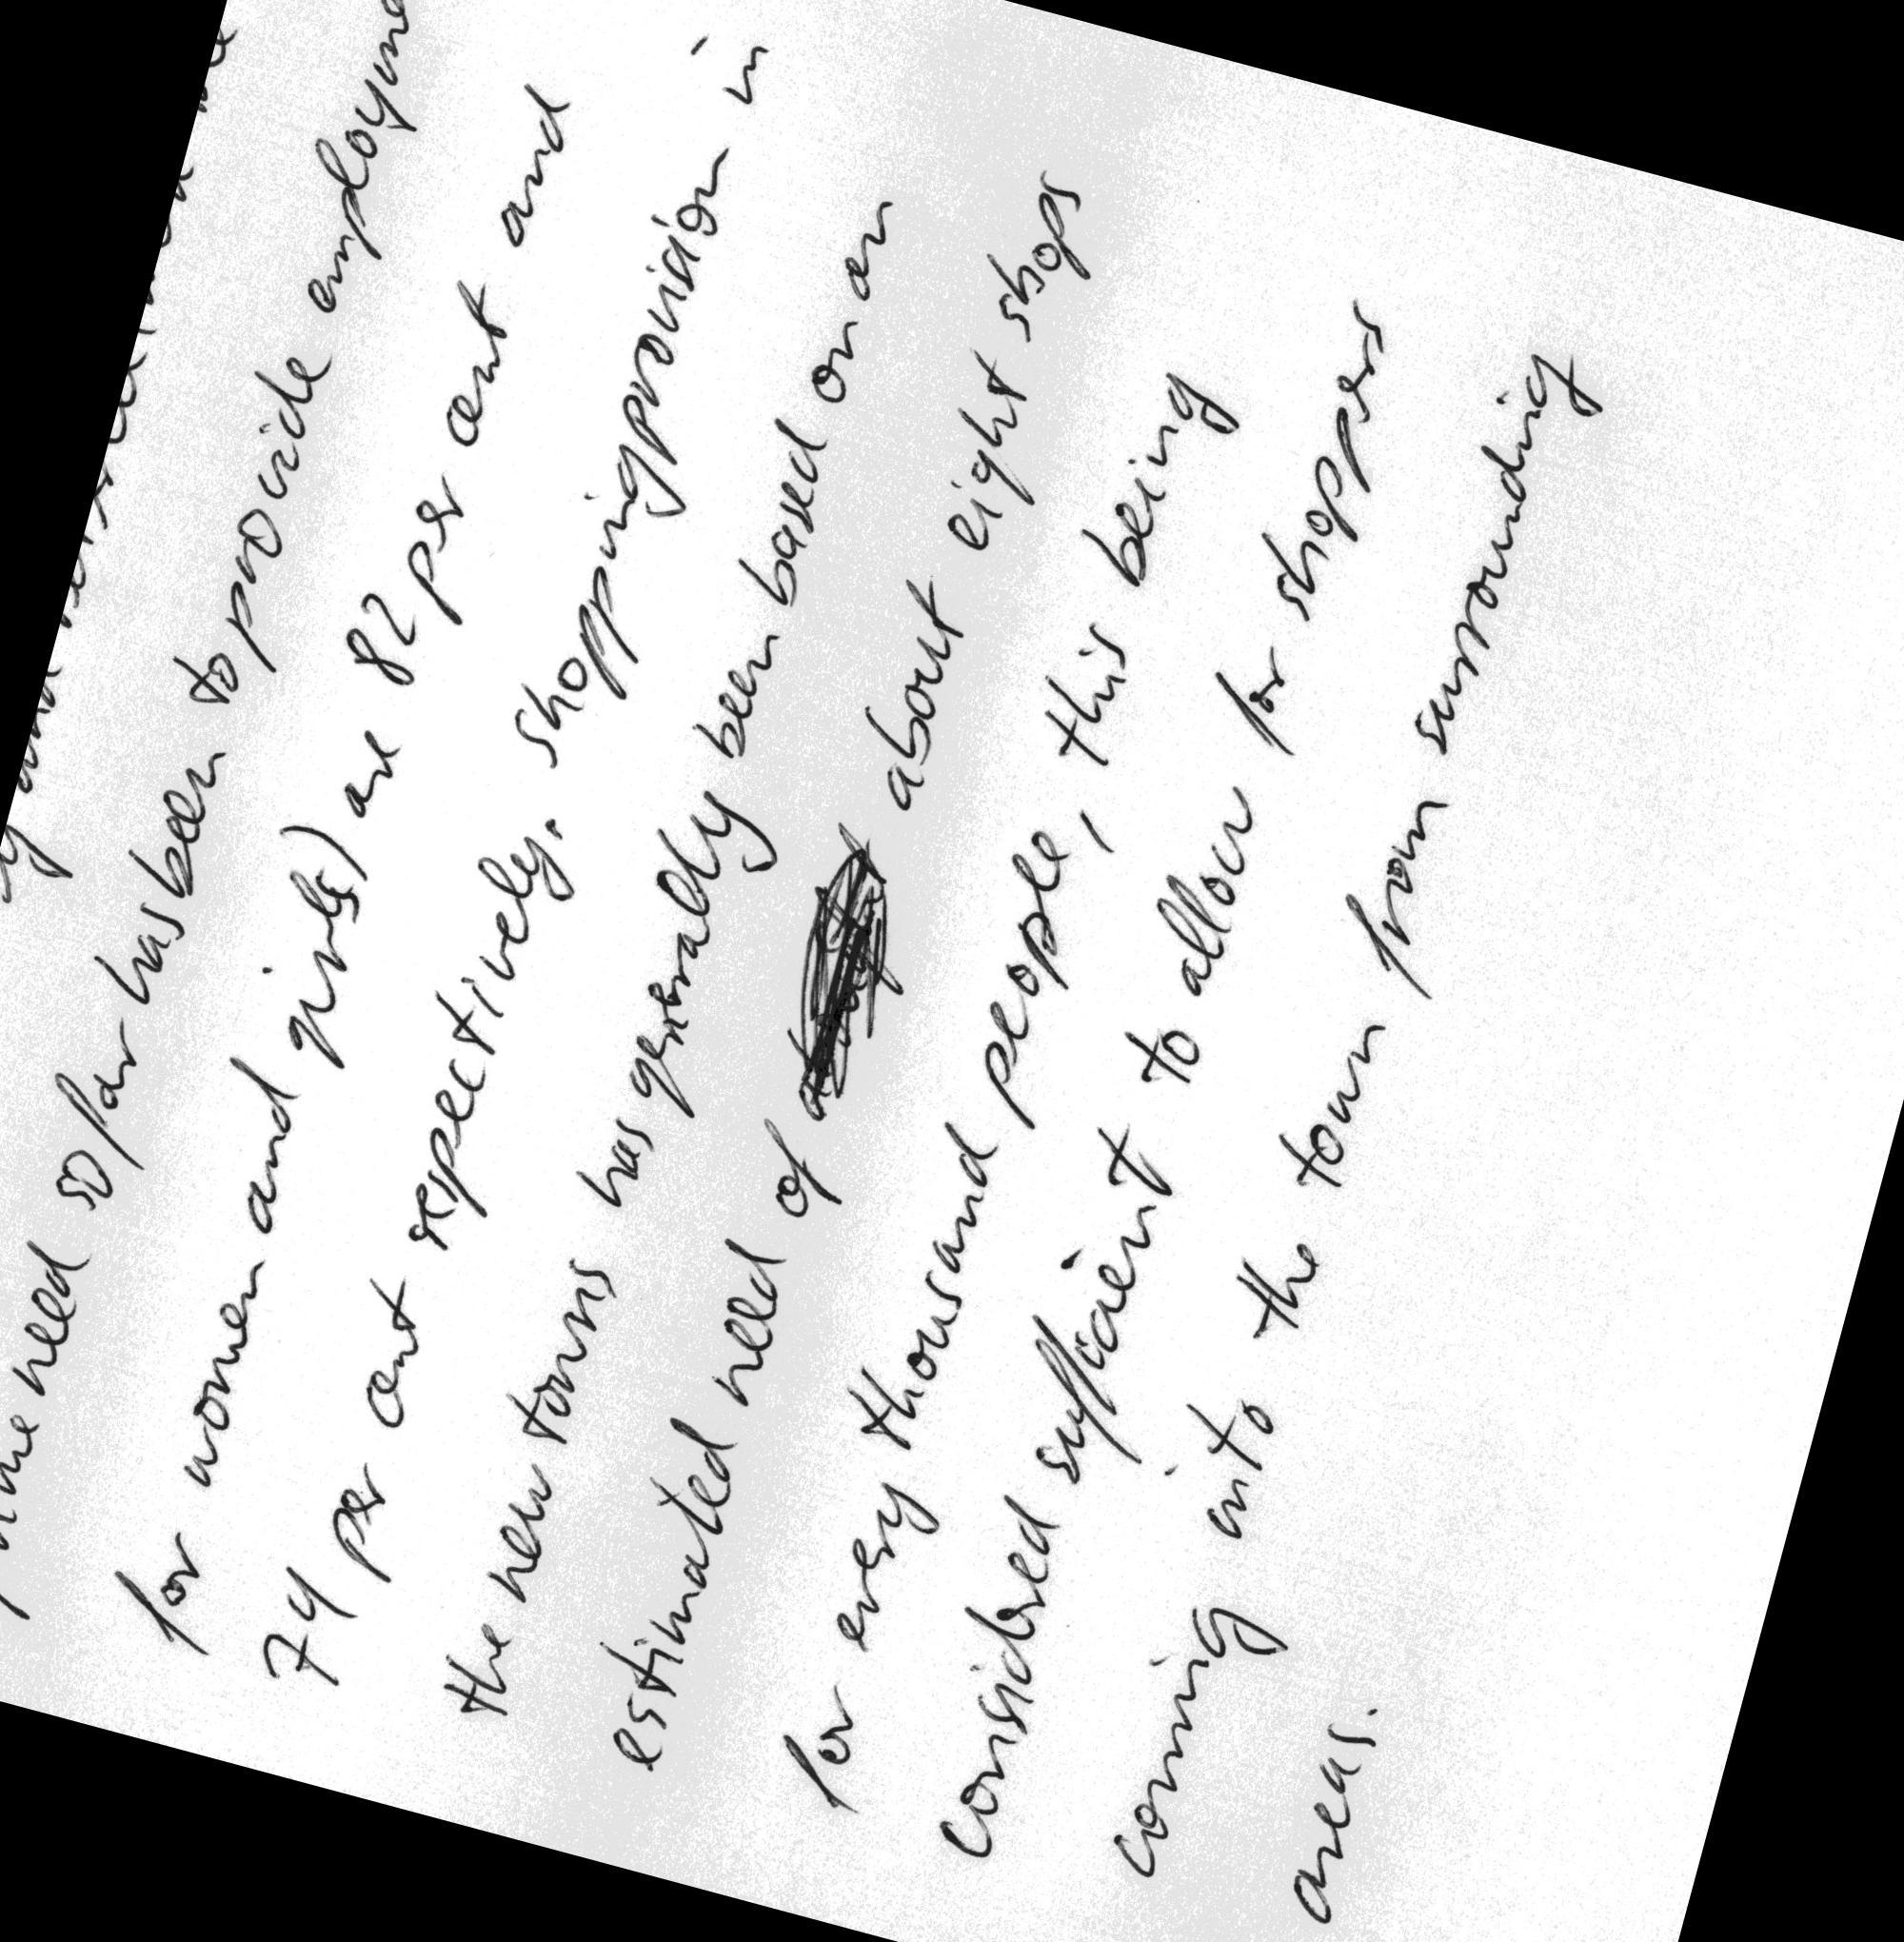 need so far has been to provide
for women and girls) are 82 per cent and
74 per cent respectively. shopping provision in
the new towns has generally been based on an
estimated need of about eight shops
for every thousand people, this being
considered sufficient to allow for shoppers
coming into the town from surrounding
areas.